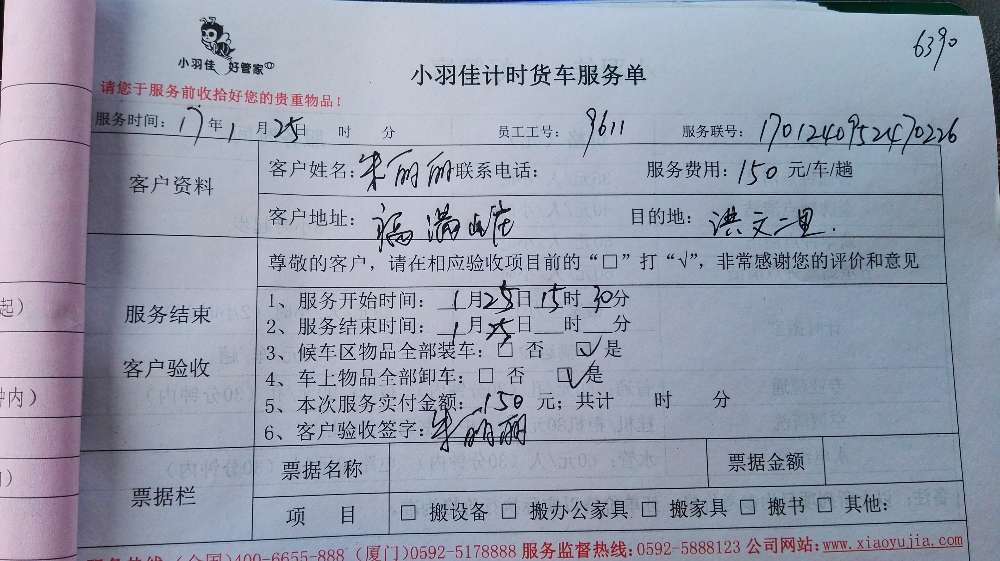 6390
小羽佳 好管家
小羽佳计时货车服务单
请您于服务前收拾好您的贵重物品！
服务时间：17年1月25日 时 分 员工工号：9611 服务联号：1701240952470226
客户资料
客户姓名：朱丽丽 联系电话： 服务费用：150 元/车/趟
客户地址：福满山庄 目的地：洪文二里.
服务结束
客户验收
尊敬的客户，请在相应验收项目前的“□”打“√”，非常感谢您的评价和意见
1、服务开始时间：1月25日15时30分
2、服务结束时间：1月25日___时___分
3、候车区物品全部装车：□ 否 ☑是
4、车上物品全部卸车：□ 否 ☑是
5、本次服务实付金额：150 元；共计 时 分
6、客户验收签字：朱丽丽
票据栏
票据名称 票据金额
项 目 □ 搬设备 □ 搬办公家具 □ 搬家具 □ 搬书 □ 其他:
服务热线：(全国)400-6655-888 (厦门)0592-5178888 服务监督热线:0592-5888123 公司网站:www.xiaoyujia.com
起)
钟内)